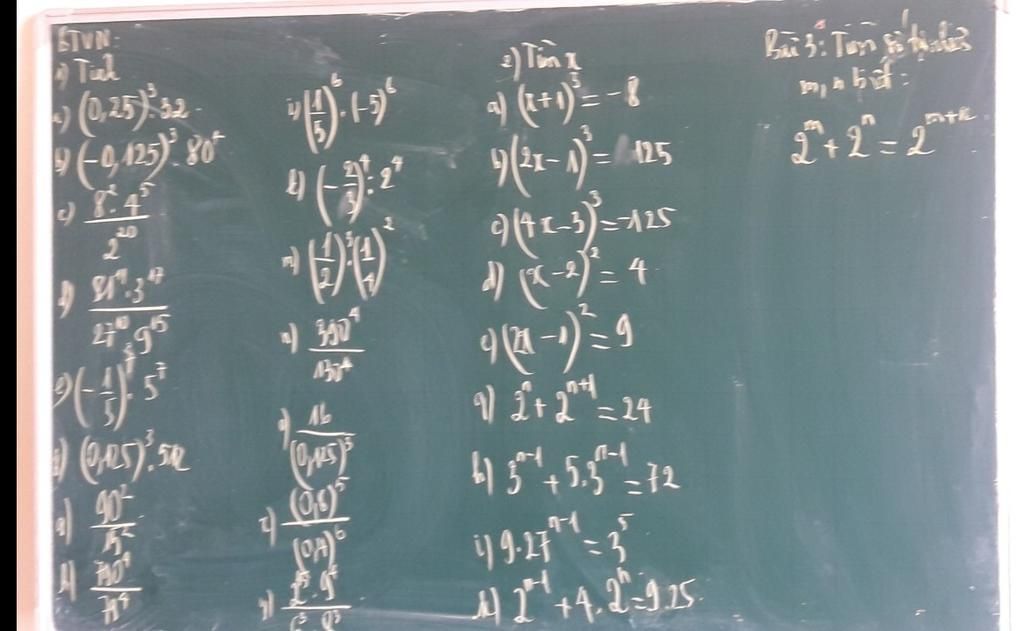 BTVN:
1) Tính
a) (0,25)³.32
b) (-0,125)³.80⁴
c) 8².4⁵ / 2²⁰
(-1/5)⁷.5⁷
(0,125)³.512
90² / 15²
790⁴ / 79⁴
(1/5)⁶.(-5)⁶
l) (-2/3)⁴:2⁴
m) (1/2)³.(1/4)²
n) 390⁴ / 130⁴
(0,125)³
(0,8)⁵ / (0,4)⁶
2) Tìm x
a) (x+1)³ = -8
b) (2x-1)³ = 125
c) (4x-3)³ = -125
d) (x-2)² = 4
e) (2x-1)² = 9
2ⁿ + 2ⁿ⁺¹ = 24
h) 3ⁿ⁻¹ + 5.3ⁿ⁻¹ = 72
i) 9.27ⁿ⁻¹ = 3⁵
k) 2ⁿ⁻¹ + 4.2ⁿ = 9.25
Bài 3: Tìm số
m, n biết:
2ᵐ + 2ⁿ = 2ᵐ⁺ⁿ